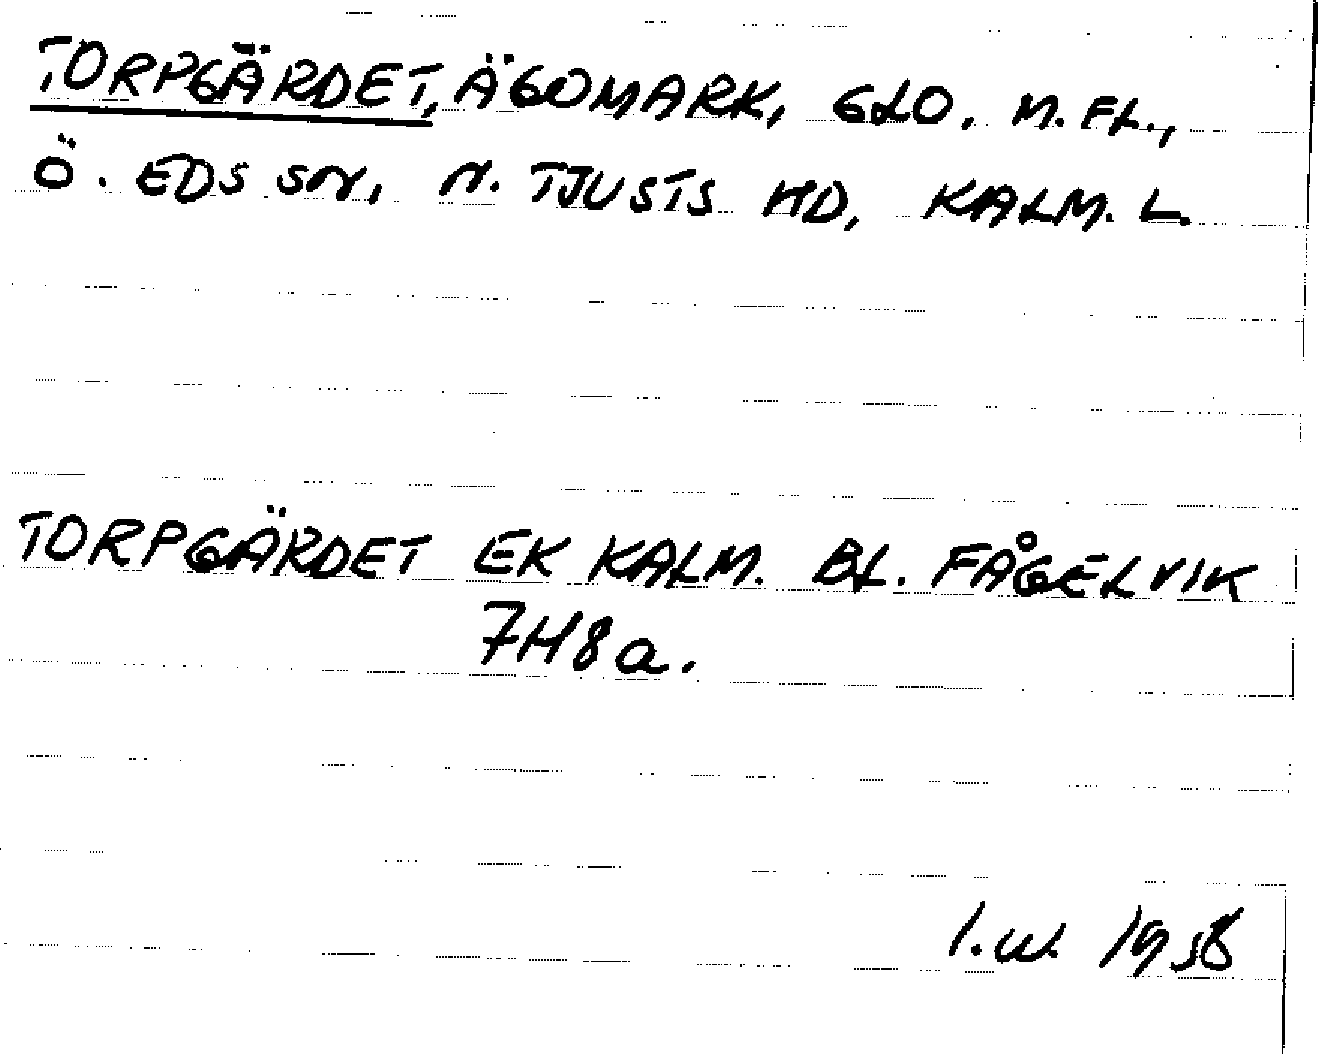 TORPGÄRDET, ÄGOMARK, GLO. M. FL.,
Ö. EDS SN, N. TJUSTS HD, KALM. L.
TORPGÄRDET EK KALM. BL. FÅGELVIK
7H8a.
I.W. 1958